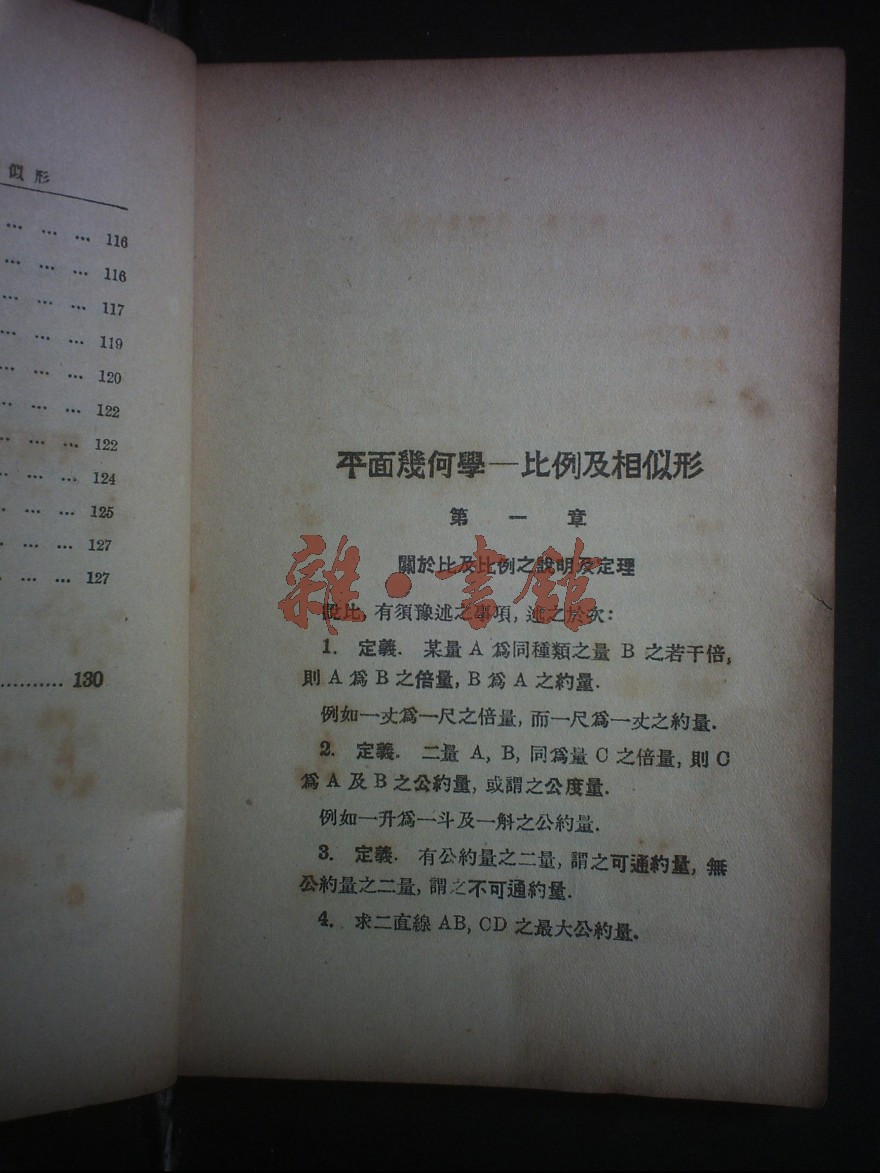 似形
... ... ... 116
... ... ... 116
... ... ... 117
... ... ... 119
... ... ... 120
... ... ... 122
... ... ... 122
... ... ... 124
... ... ... 125
... ... ... 127
... ... ... 127
............ 130
平面幾何學—比例及相似形
第一章
關於比及比例之說明及定理
雜·書館
說比, 有須豫述之事項, 述之於次:
1. 定義. 某量 A 爲同種類之量 B 之若干倍,
則 A 爲 B 之倍量, B 爲 A 之約量.
例如一丈爲一尺之倍量, 而一尺爲一丈之約量.
2. 定義. 二量 A, B, 同爲量 C 之倍量, 則 C
爲 A 及 B 之公約量, 或謂之公度量.
例如一升爲一斗及一斛之公約量.
3. 定義. 有公約量之二量, 謂之可通約量, 無
公約量之二量, 謂之不可通約量.
4. 求二直線 AB, CD 之最大公約量.